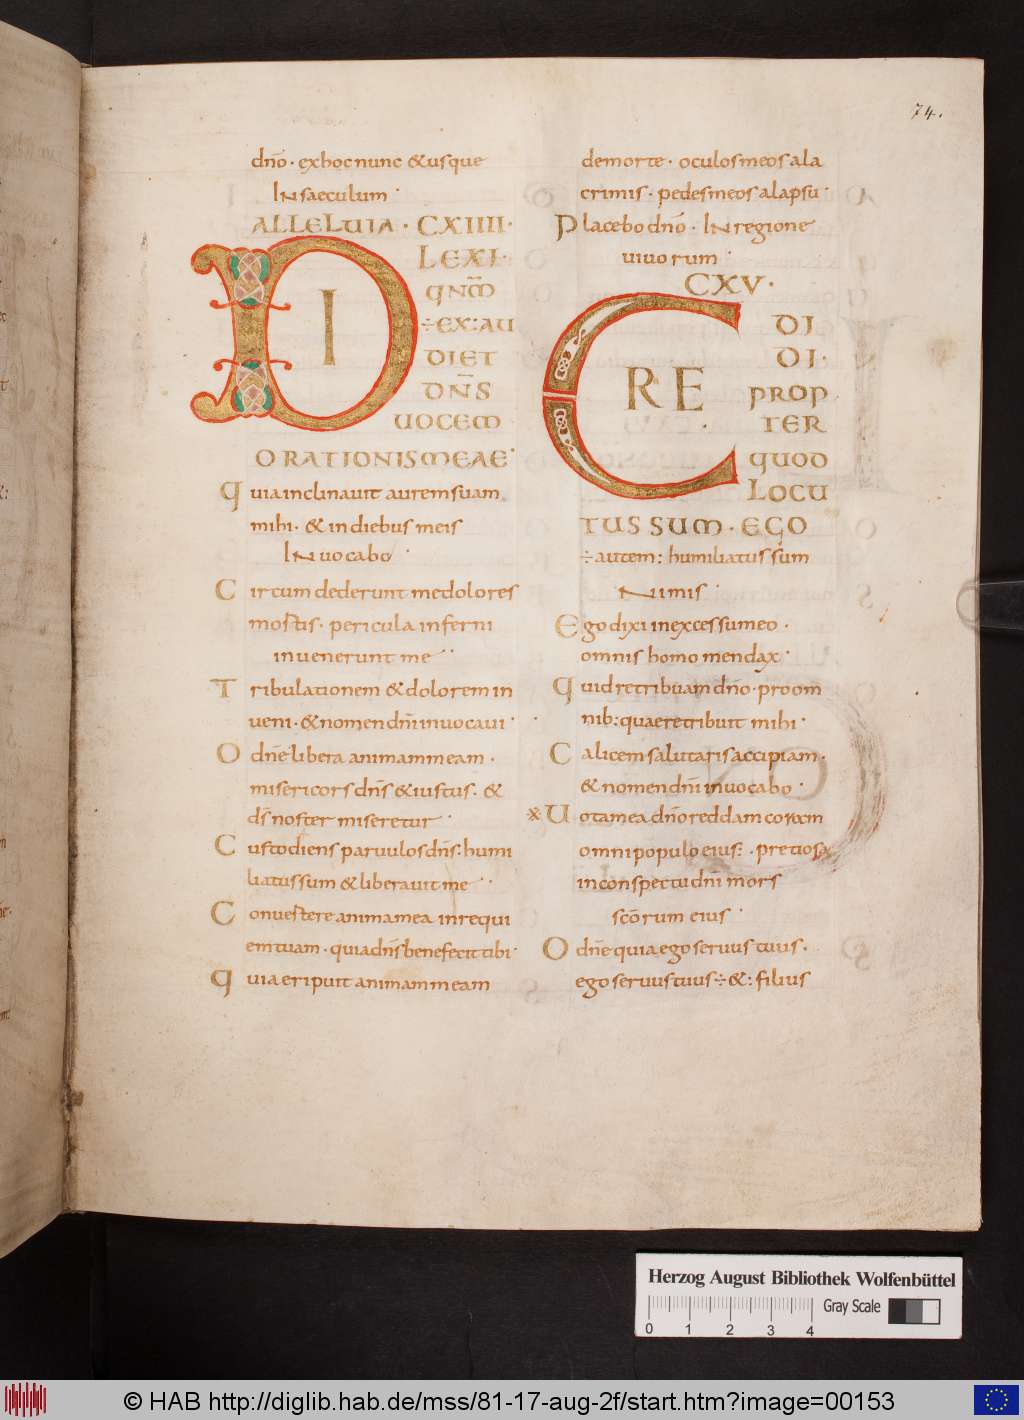 74.
dn̄o · exhoc nunc &usque
IN saeculum ·
ALLELUIA · CXIIII ·
DI LEXI ·
qNM̄
÷EX: AU
DIET
DN̄S
UOCEM
ORATIONIS MEAE ·
Quia inclinauit aurem suam
mihi · & in diebus meis
INuocabo ·
Circumdederunt me dolores
mortis · pericula inferni
inuenerunt me ··
Tribulationem & dolorem in
ueni · & nomen dn̄i inuocaui ·
O dn̄e libera animam meam ·
misericors dn̄s & iustus · &
d̄s noster miseretur ·
Custodiens paruulos dn̄s: humi
liatus sum & liberauit me ··
Conuertere anima mea in requi
em tuam · quia dn̄s benefecit tibi ·
Quia eripuit animam meam
de morte · oculos meos a la
crimis · pedes meos a lapsu ·
Placebo dn̄o · IN regione
uiuorum ·
CXV ·
CRE DI
DI ·
PROP
TER
QUOD
LOCU
TUS SUM · EGO
÷autem: humiliatus sum
Nimis ·
Ego dixi in excessu meo ·
omnis homo mendax ·
Quid retribuam dn̄o · pro om
nib: quae retribuit mihi ·
Calicem salutaris accipiam ·
& nomen dn̄i inuocabo ·
※ Uota mea dn̄o reddam coram
omni populo eius: · pretiosa
in conspectu dn̄i mors
sc̄orum eius ·
O dn̄e quia ego seruus tuus ·
ego seruus tuus ÷&: filius
Herzog August Bibliothek Wolfenbüttel
0 1 2 3 4 Gray Scale
© HAB http://diglib.hab.de/mss/81-17-aug-2f/start.htm?image=00153